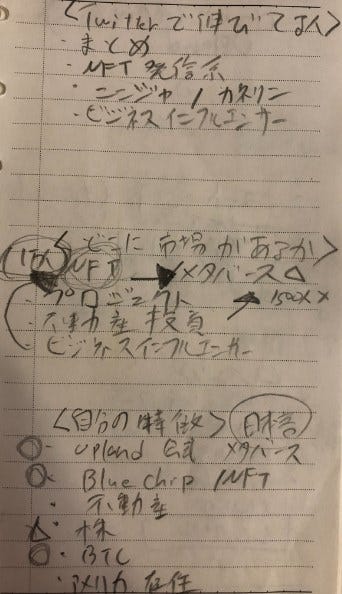 <Twitterで伸びてる人>
・まとめ
・NFT発信系
・ニンジャ / カネリン
・ビジネスインフルエンサー
<どこに市場があるか>
NFT → メタバース △
・プロジェクト
・不動産投資
・ビジネスインフルエンサー
<自分の特徴> 日本語
○・Upland 公式 メタバース
○・Blue Chip NFT
・不動産
△・株
○・BTC
・アメリカ在住